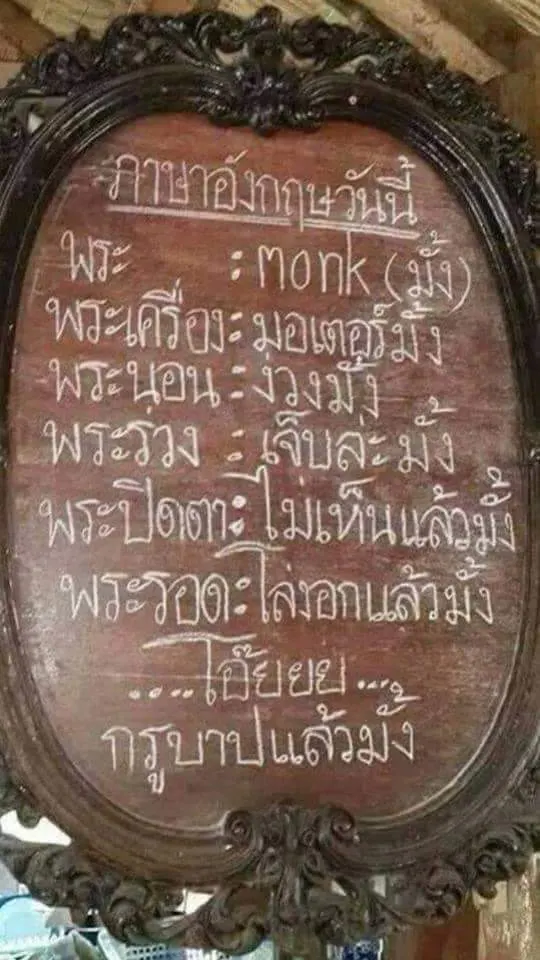 ภาษาอังกฤษวันนี้
พระ : monk (มั้ง)
พระเครื่อง : มอเตอร์มั้ง
พระนอน : ง่วงมั้ง
พระร่วง : เจ็บล่ะมั้ง
พระปิดตา : ไม่เห็นแล้วมั้ง
พระรอด : โล่งอกแล้วมั้ง
....โอ๊ยยย...
กรูบาปแล้วมั้ง